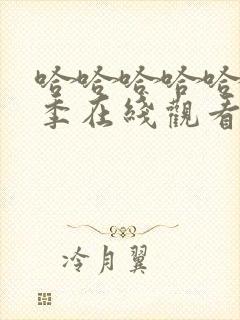 哈哈哈哈哈
季在綫觀看
冷月翼